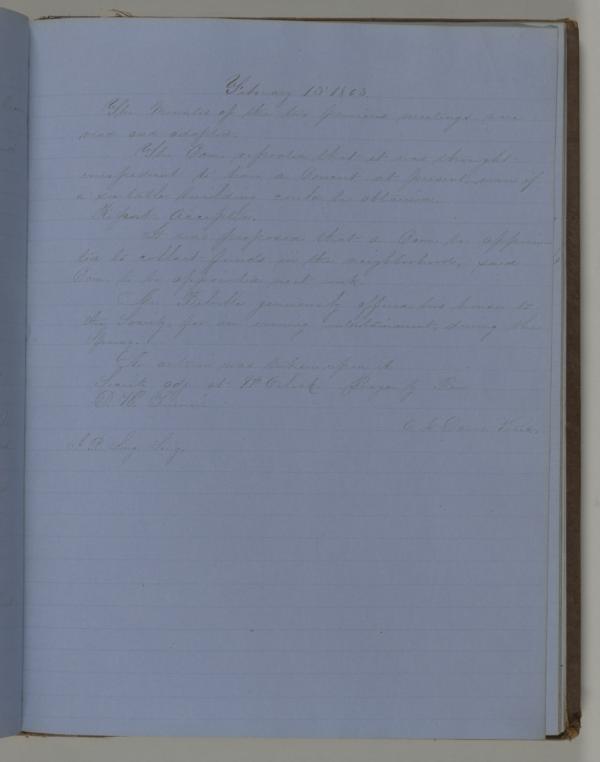 February 15 1863.
The Minutes of the two previous meetings were
read and adopted.
The Com reported that it was thought
inexpedient to have a Concert at present, even if
a suitable building could be obtained.
Report Accepted.
It was proposed that a Com be appoin
ted to collect funds in the neighborhoods, said
Com to be appointed next week.
Mr. generously offered his house to
the Society for an evening entertainment, during the
No action was taken upon it
Society adj. at O'clock Prayer by Rev
D. W.